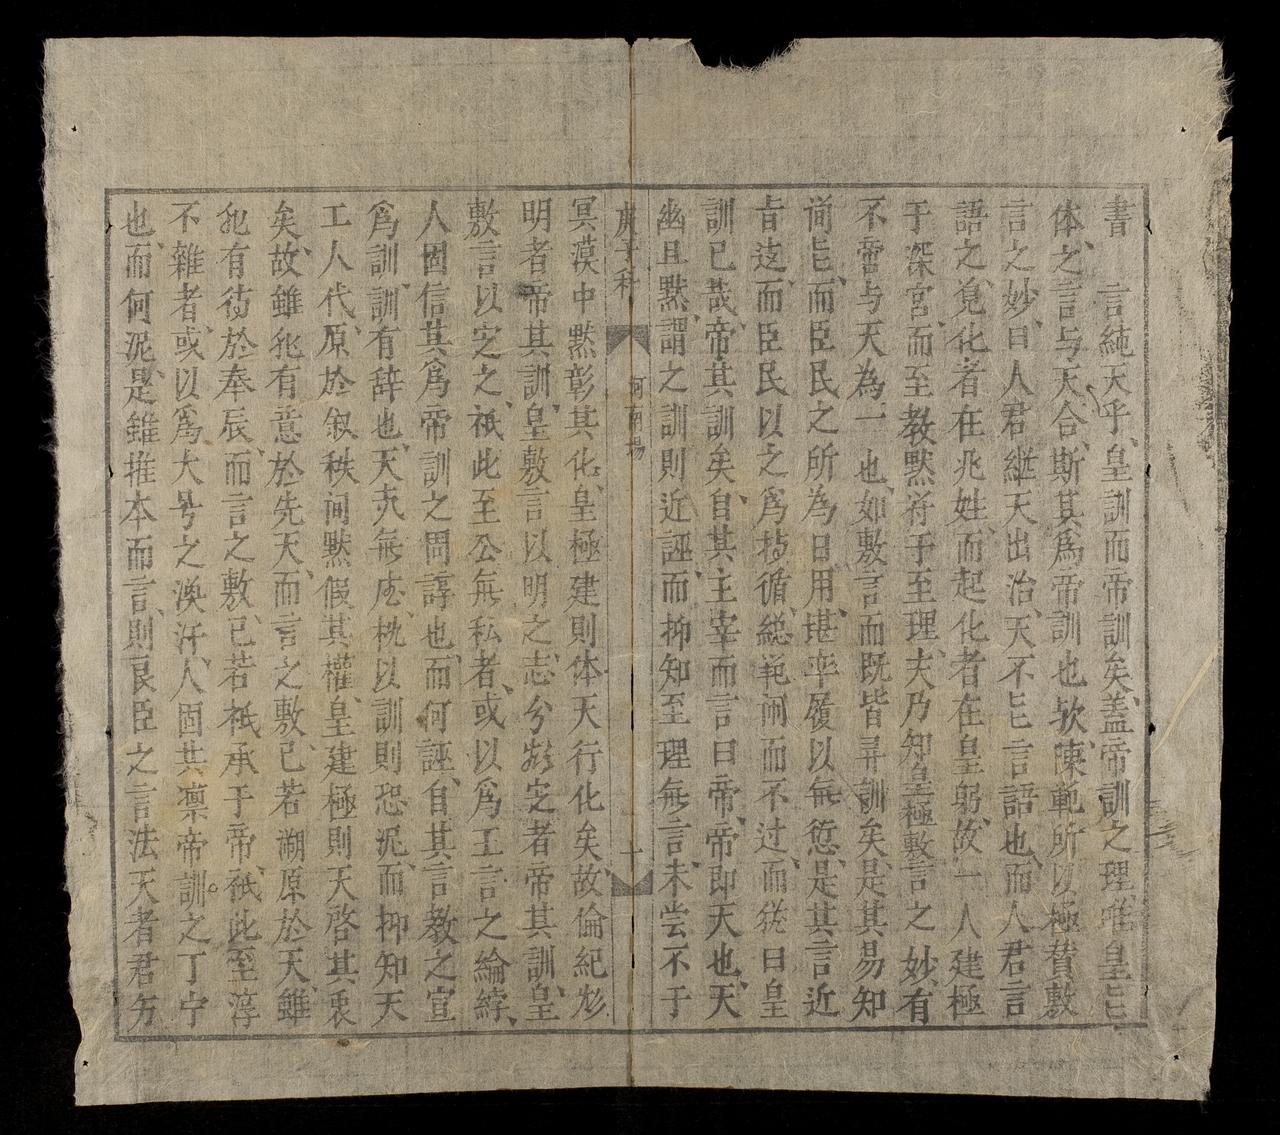 書 言純天乎、皇訓而帝訓矣、盖帝訓之理、唯皇㠯
体之、言与天合、斯其爲帝訓也欤、陳範所以極賛敷
言之妙、曰人君継天出治、天不㠯言語也、而人君言
語之、覓化者在兆姓、而起化者在皇躬、故一人建極
于深宮、而至教默符乎至理、夫乃知皇極敷言之妙、有
不啻与天為一也、如敷言而既皆弄訓矣、是其易知
簡㠯、而臣民之所為日用、堪率履以無愆、是其言近
㫖逺、而臣民以之爲持循、総範闱而不过、而従曰皇
訓已哉、帝其訓矣、自其主宰而言曰帝、帝即天也、天
幽且黙、謂之訓則近誣、而抑知至理無言、未尝不于
庚子科 河南場 十
冥漠中黙彰其化、皇極建則体天行化矣、故倫紀㷋
明者帝其訓、皇敷言以明之、志分㷋定者帝其訓、皇
敷言以定之、祇此至公無私者、或以爲工言之綸綍、
人固信其爲帝訓之周諄也、而何誣、自其言教之宣
爲訓、訓有辞也、天㐬無㡯、執以訓則恐泥、而抑知天
工人代、原於叙秩间默假其權、皇建極則天啓其衷
矣、故雖非有意於先天、而言之敷、已若溯原於天、雖
非有待於奉辰、而言之敷、已若祇承于帝、祇此至淳
不雜者、或以爲大号之渙汗、人固其凛帝訓之丁宁
也、而何泥、是雖推本而言、則良臣之言法天者君另